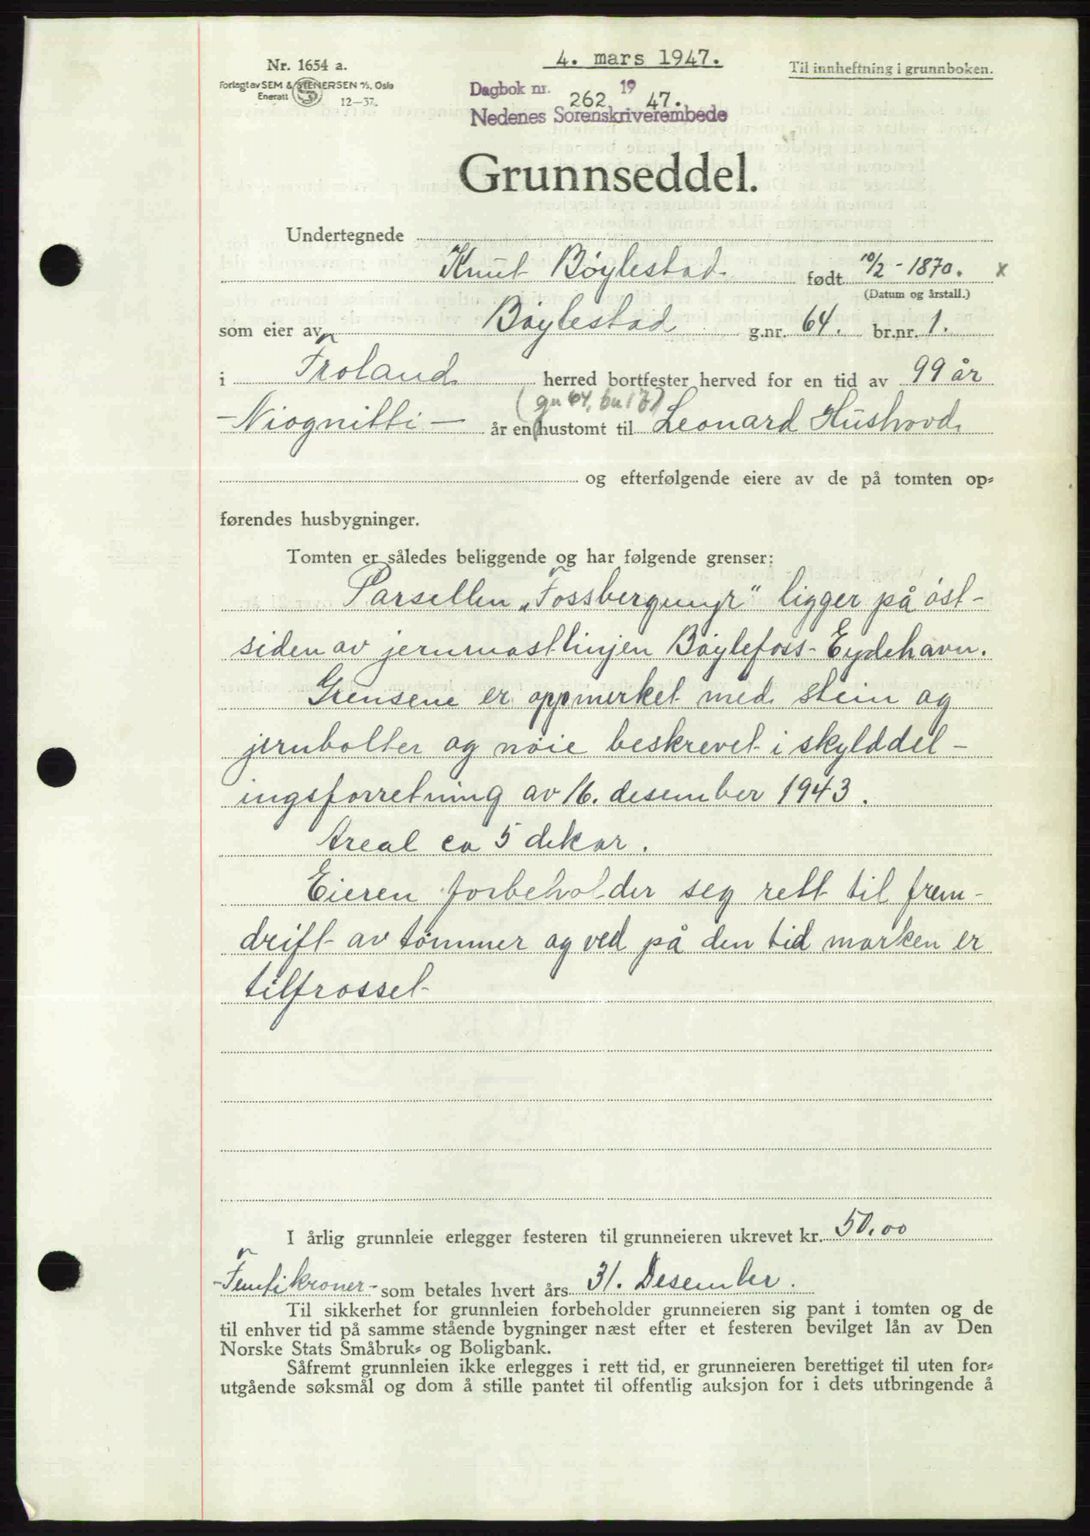 Nr. 1654 a.
Forlagt av SEM & STENERSEN A/S, Oslo
Enerett
12—37.
4. mars 1947.
Til innheftning i grunnboken.
Dagbok nr. 262 19 47.
Nedenes Sorenskriverembede
Grunnseddel.
Undertegnede
Knut Bøylestad født 10/2 - 1870. x
(Datum og årstall.)
som eier av Bøylestad g.nr. 64. br.nr. 1.
i Froland herred bortfester herved for en tid av 99 år
(gn 64, bn 17)
- Niognitti - år en hustomt til Leonard Hushovd
og efterfølgende eiere av de på tomten op-
førendes husbygninger.
Tomten er således beliggende og har følgende grenser:
Parsellen „Fossbergmyr" ligger på øst-
siden av jernmastlinjen Bøylefoss - Eydehavn.
Grensene er oppmerket med stein og
jernbolter og nøie beskrevet i skylddel-
ingsforretning av 16. desember 1943.
Areal ca 5 dekar.
Eieren forbeholder seg rett til frem-
drift av tømmer og ved på den tid marken er
tilfrosset
I årlig grunnleie erlegger festeren til grunneieren ukrevet kr. 50.00
- Femti kroner - som betales hvert års 31. Desember.
Til sikkerhet for grunnleien forbeholder grunneieren sig pant i tomten og de
til enhver tid på samme stående bygninger næst efter et festeren bevilget lån av Den
Norske Stats Småbruk- og Boligbank.
Såfremt grunnleien ikke erlegges i rett tid, er grunneieren berettiget til uten for-
utgående søksmål og dom å stille pantet til offentlig auksjon for i dets utbringende å